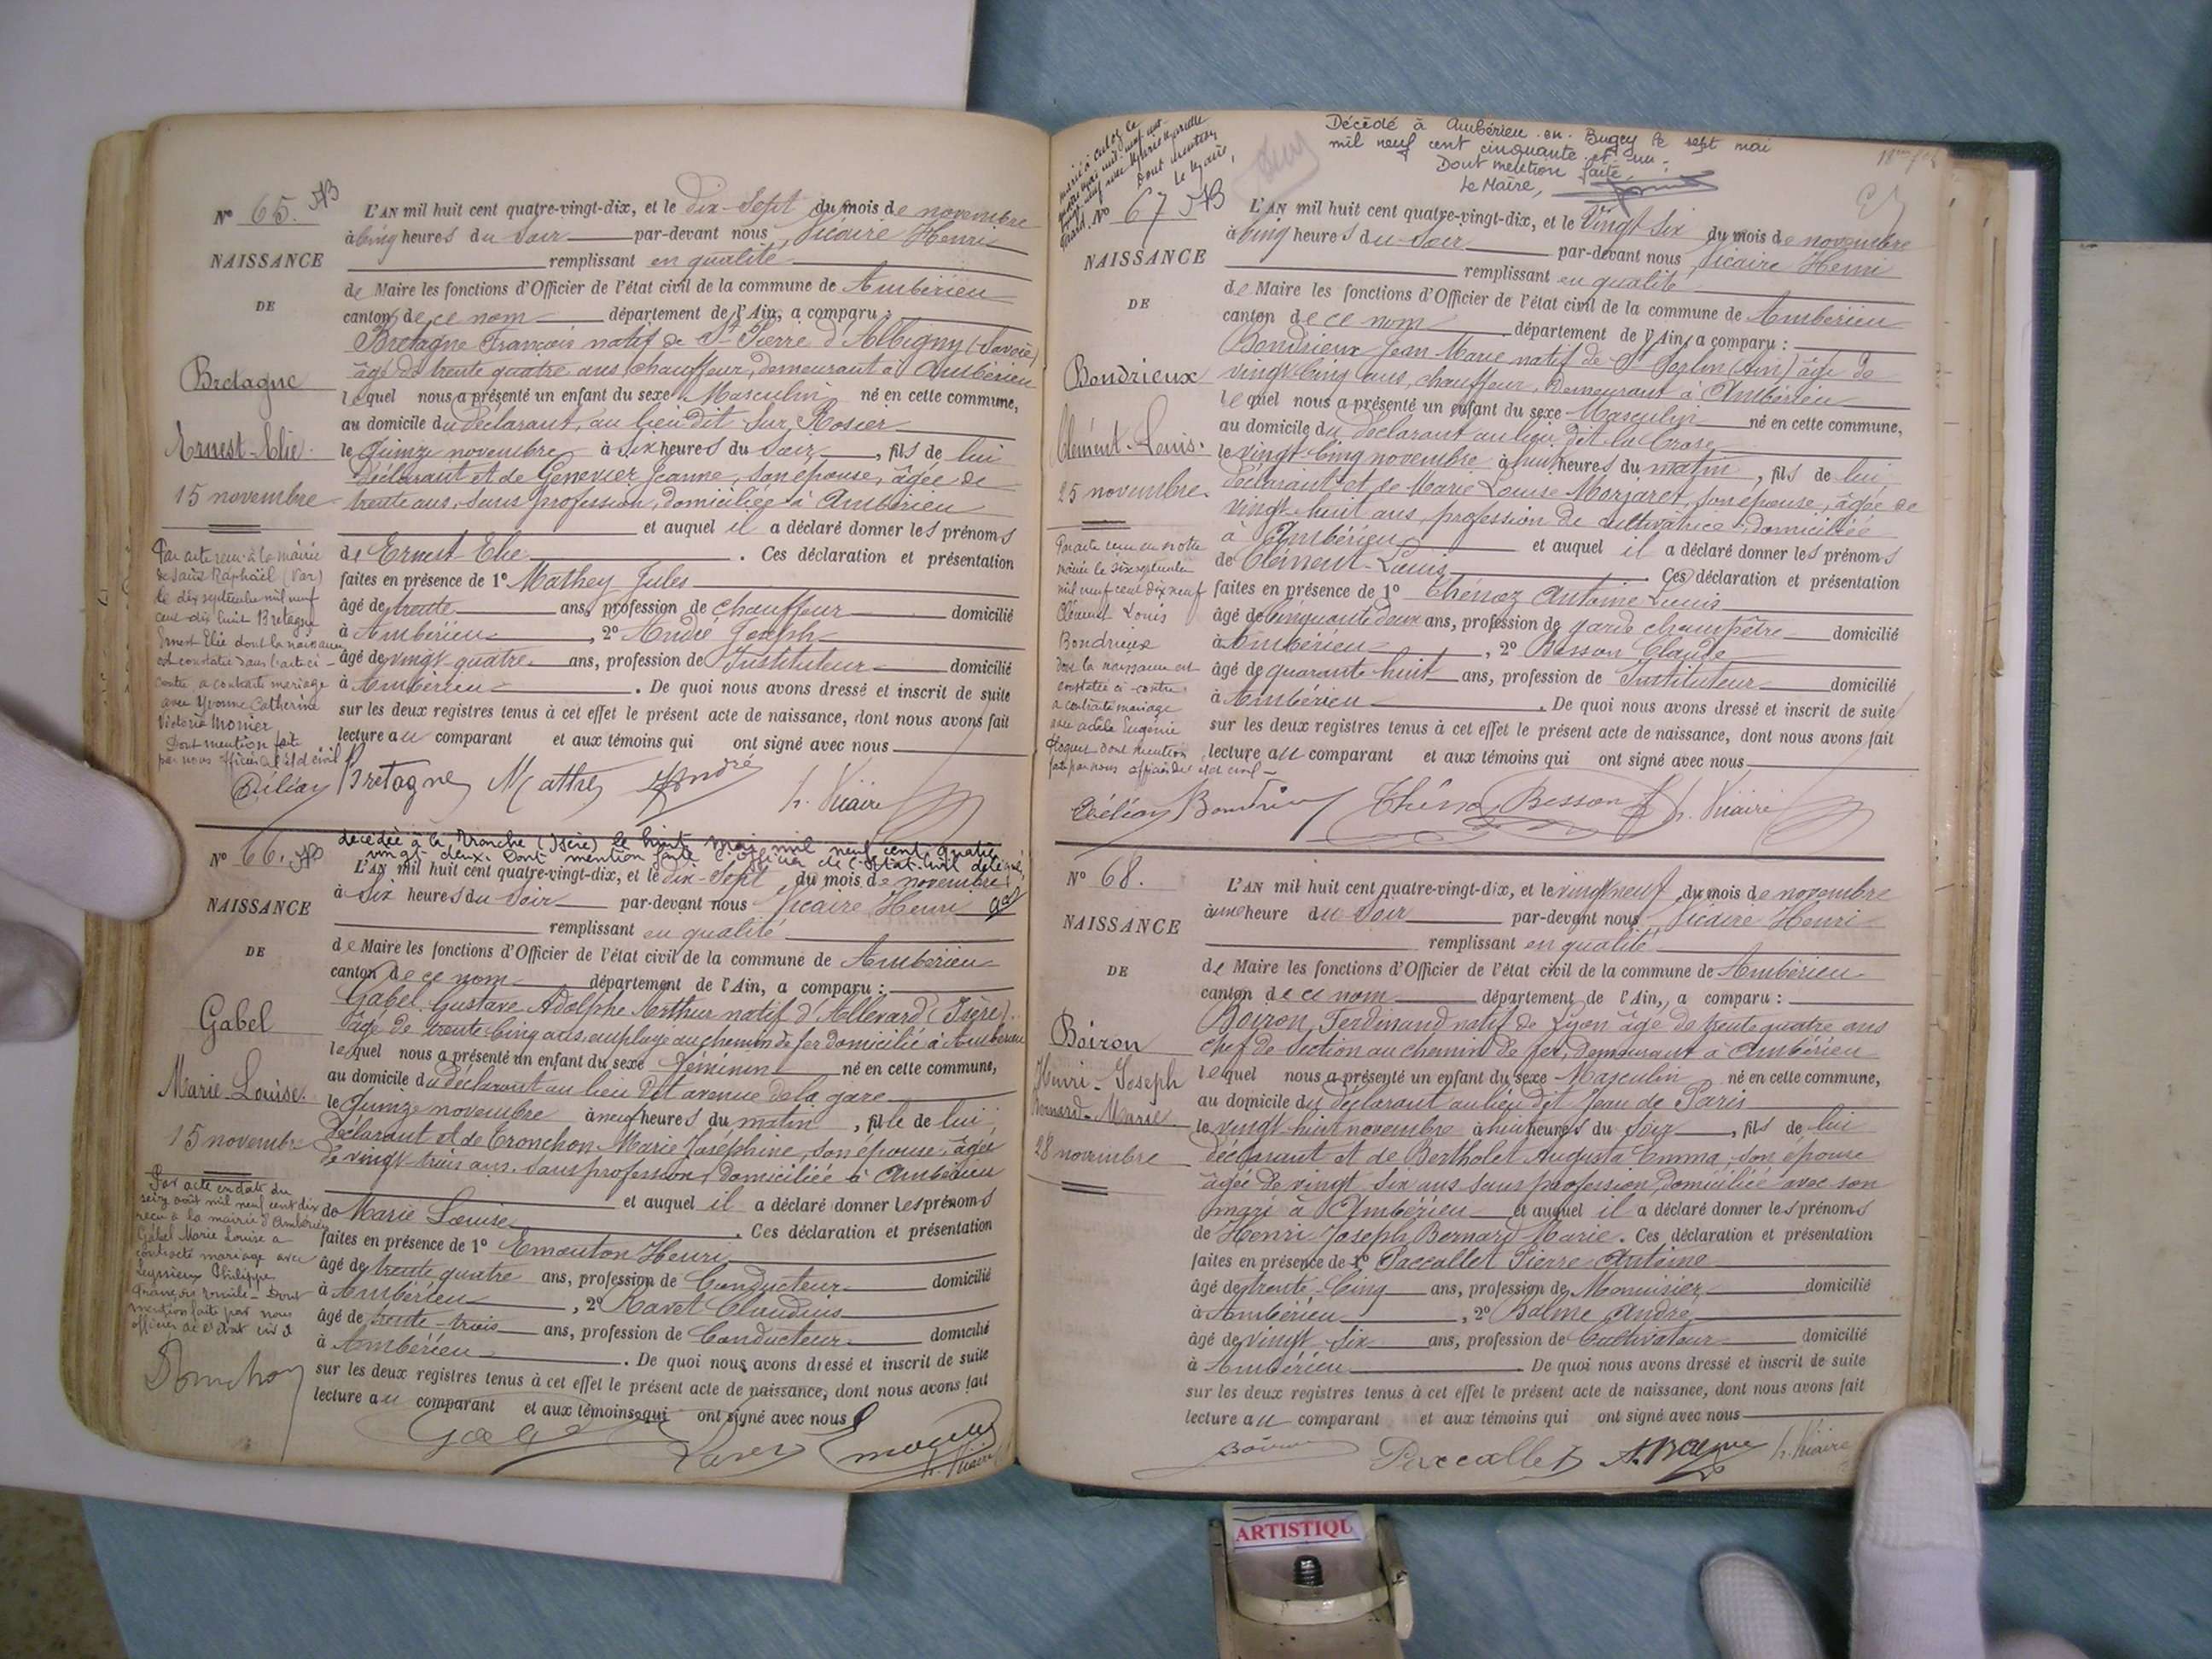 N° 65.
NAISSANCE
DE
Bretagne
Ernest-Elie.
15 novembre
L'AN mil huit cent quatre-vingt-dix, et le dix-Sept du mois de novembre
à Cinq heures du Soir par-devant nous Vicaire Henri
remplissant en qualité
de Maire les fonctions d'Officier de l'état civil de la commune de Ambérieu
canton de ce nom département de l'Ain, a comparu :
Bretagne François natif de St Pierre d'Albigny (Savoie)
âgé de trente quatre ans, chauffeur, demeurant à Ambérieu
lequel nous a présenté un enfant du sexe Masculin né en cette commune,
au domicile du déclarant, au lieu dit Sur Rosier
le Quinze novembre à Six heures du Soir, fils de lui
déclarant et de Genevier Jeanne, son épouse, âgée de
trente ans, sans profession, domiciliée à Ambérieu
et auquel il a déclaré donner les prénoms
de Ernest Elie. Ces déclaration et présentation
faites en présence de 1° Mathey Jules
âgé de trente ans, profession de chauffeur domicilié
à Ambérieu, 2° André Joseph
âgé de vingt quatre ans, profession de Instituteur domicilié
à Ambérieu. De quoi nous avons dressé et inscrit de suite
sur les deux registres tenus à cet effet le présent acte de naissance, dont nous avons fait
lecture au comparant et aux témoins qui ont signé avec nous
Par acte reçu à la mairie
de Saint Raphaël (Var)
le dix septembre mil neuf
cent dix huit Bretagne
Ernest Elie dont la naissance
est constatée dans l'acte ci-
contre a contracté mariage
avec Yvonne Catherine
Victoria Monier
Dont mention faite
par nous officier de l'état civil
Bretagne Mathey André h. Vicaire
N° 66.
décédée à la Tronche (Isère) le huit mai mil neuf cent quatre
vingt deux. Dont mention faite l'officier de l'état-civil délégué,
NAISSANCE
DE
Gabel
Marie-Louise.
15 novembre
L'AN mil huit cent quatre-vingt-dix, et le dix-Sept du mois de novembre
à Six heures du Soir par-devant nous Vicaire Henri
remplissant en qualité
de Maire les fonctions d'Officier de l'état civil de la commune de Ambérieu
canton de ce nom département de l'Ain, a comparu :
Gabel Gustave Adolphe Arthur natif d'Allevard (Isère)
âgé de trente Cinq ans, employé au chemin de fer domicilié à Ambérieu
lequel nous a présenté un enfant du sexe féminin né en cette commune,
au domicile du déclarant au lieu dit avenue de la gare
le Quinze novembre à neuf heures du matin, fille de lui
déclarant et de Tronchon Marie Joséphine, son épouse, âgée
de vingt trois ans, sans profession, domiciliée à Ambérieu
et auquel il a déclaré donner les prénoms
de Marie Louise. Ces déclaration et présentation
faites en présence de 1° Emonton Henri
âgé de trente quatre ans, profession de Conducteur domicilié
à Ambérieu, 2° Ravet Claudius
âgé de trente-trois ans, profession de Conducteur domicilié
à Ambérieu. De quoi nous avons dressé et inscrit de suite
sur les deux registres tenus à cet effet le présent acte de naissance, dont nous avons fait
lecture au comparant et aux témoins qui ont signé avec nous
Par acte en date du
seize août mil neuf cent dix
reçu à la mairie d'Ambérieu
Gabel Marie Louise a
contracté mariage avec
Philippe
François Dont
mention faite par nous
officier de l'état civil
Gabel Ravet h. Vicaire
Décédé à Ambérieu-en-Bugey le sept mai
mil neuf cent cinquante et un.
Dont mention faite,
Le Maire,
N° 67
NAISSANCE
DE
Bondrieux
Clément-Louis.
25 novembre.
L'AN mil huit cent quatre-vingt-dix, et le Vingt Six du mois de novembre
à Cinq heures du Soir par-devant nous Vicaire Henri
remplissant en qualité
de Maire les fonctions d'Officier de l'état civil de la commune de Ambérieu
canton de ce nom département de l'Ain, a comparu :
Bondrieux Jean Marie natif de St Sorlin (Ain) âgé de
vingt Cinq ans, chauffeur, demeurant à Ambérieu
lequel nous a présenté un enfant du sexe Masculin né en cette commune,
au domicile du déclarant au lieu dit la Croze
le vingt-Cinq novembre à huit heures du matin, fils de lui
déclarant et de Marie Louise Morjaret, son épouse, âgée de
vingt-huit ans, profession de cultivatrice, domiciliée
à Ambérieu et auquel il a déclaré donner les prénoms
de Clément-Louis. Ces déclaration et présentation
faites en présence de 1° Thénoz Antoine Louis
âgé de Cinquante deux ans, profession de garde champêtre domicilié
à Ambérieu, 2° Besson Claude
âgé de quarante huit ans, profession de Instituteur domicilié
à Ambérieu. De quoi nous avons dressé et inscrit de suite
sur les deux registres tenus à cet effet le présent acte de naissance, dont nous avons fait
lecture au comparant et aux témoins qui ont signé avec nous
Par acte reçu en notre
mairie le six septembre
mil neuf cent dix neuf
Clément Louis
Bondrieux
dont la naissance est
constatée ci-contre
a contracté mariage
avec Adèle Eugénie
dont mention
faite par nous officier de l'état civil
Besson h. Vicaire
N° 68.
NAISSANCE
DE
Boiron
Henri-Joseph
Bernard-Marie.
28 novembre
L'AN mil huit cent quatre-vingt-dix, et le vingt neuf du mois de novembre
à une heure du Soir par-devant nous Vicaire Henri
remplissant en qualité
de Maire les fonctions d'Officier de l'état civil de la commune de Ambérieu
canton de ce nom département de l'Ain, a comparu :
Boiron Ferdinand natif de Lyon âgé de trente quatre ans
chef de Section au chemin de fer, demeurant à Ambérieu
lequel nous a présenté un enfant du sexe Masculin né en cette commune,
au domicile du déclarant au lieu dit Jean de Paris
le vingt-huit novembre à huit heures du Soir, fils de lui
déclarant et de Bertholet Augusta Emma, son épouse
âgée de vingt Six ans sans profession domiciliée avec son
mari à Ambérieu et auquel il a déclaré donner les prénoms
de Henri Joseph Bernard Marie. Ces déclaration et présentation
faites en présence de 1° Paccallet Pierre Antoine
âgé de trente-Cinq ans, profession de Menuisier domicilié
à Ambérieu, 2° Balme André
âgé de vingt Six ans, profession de Cultivateur domicilié
à Ambérieu. De quoi nous avons dressé et inscrit de suite
sur les deux registres tenus à cet effet le présent acte de naissance, dont nous avons fait
lecture au comparant et aux témoins qui ont signé avec nous
Boiron Paccallet A. Balme h. Vicaire
ARTISTIQU